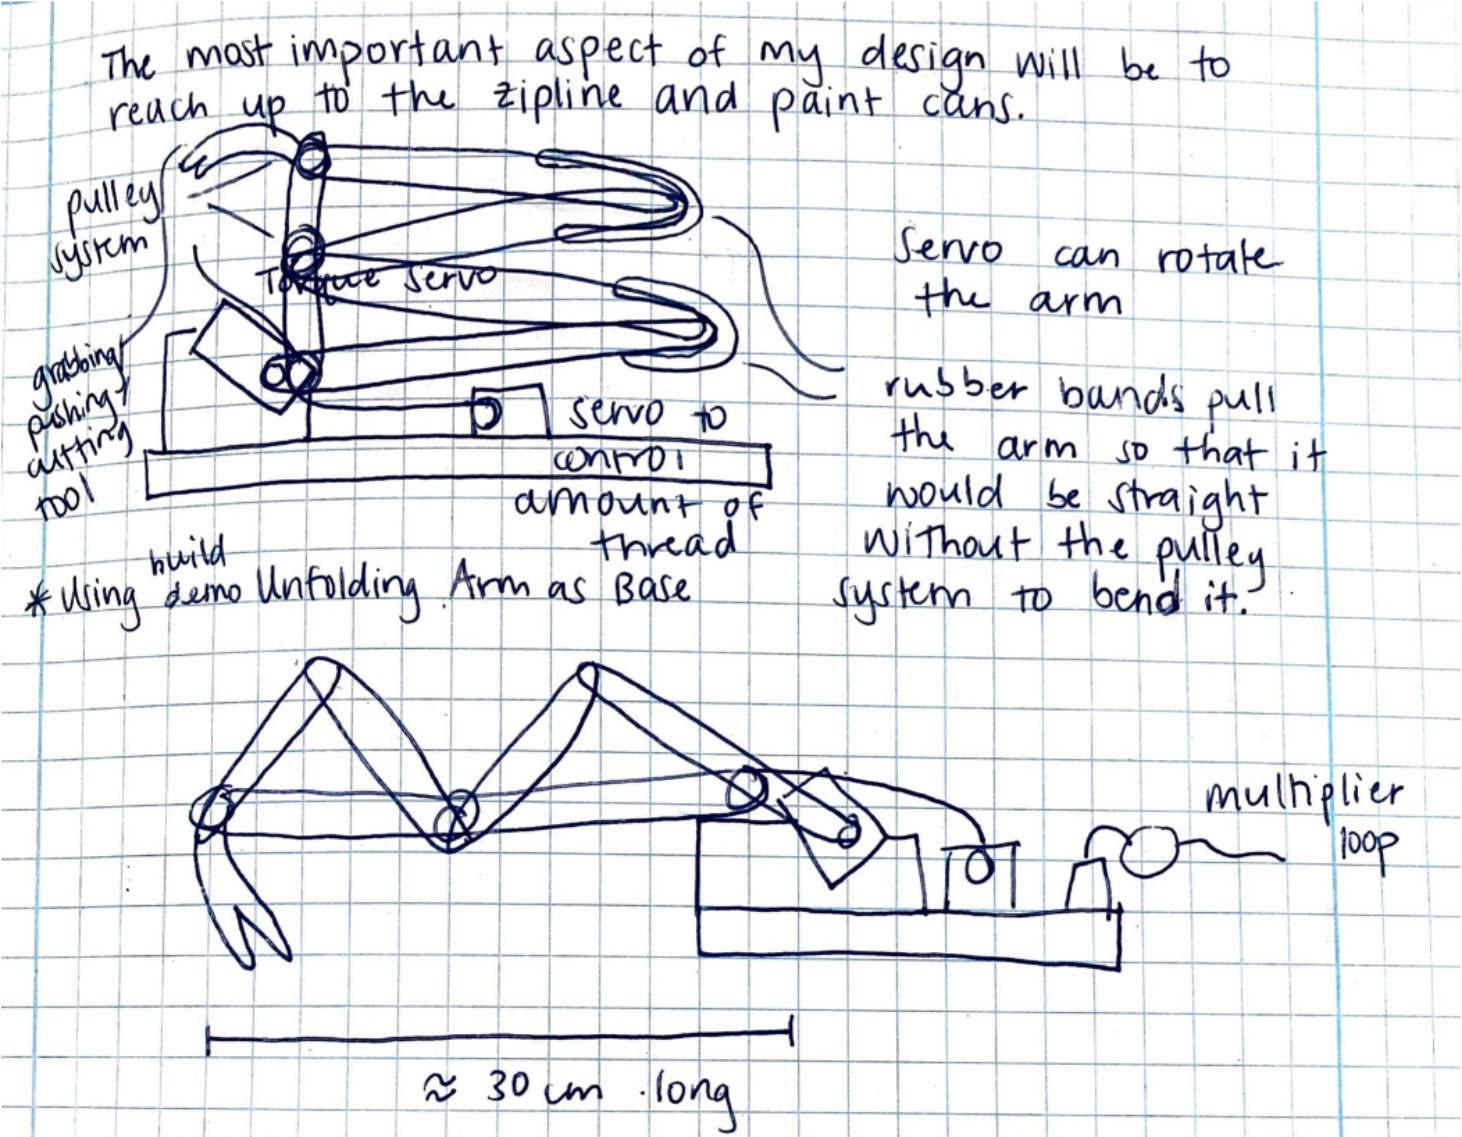 The most important aspect of my design will be to
reach up to the zipline and paint cans.
pulley
system
Torque servo
grabbing/
pushing/
cutting
tool
servo to
control
amount of
thread
servo can rotate
the arm
rubber bands pull
the arm so that it
would be straight
without the pulley
system to bend it.
build
* Using demo Unfolding Arm as Base
multiplier
loop
≈ 30 cm long